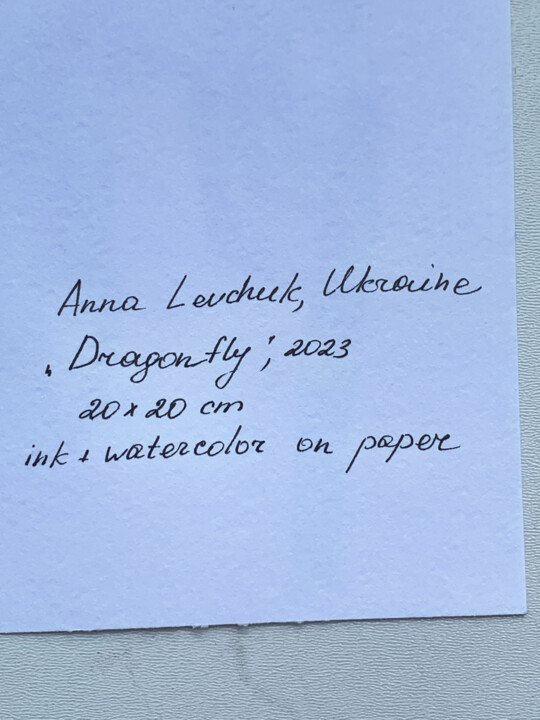 Anna Levchuk, Ukraine
„Dragonfly", 2023
20 x 20 cm
ink + watercolor on paper